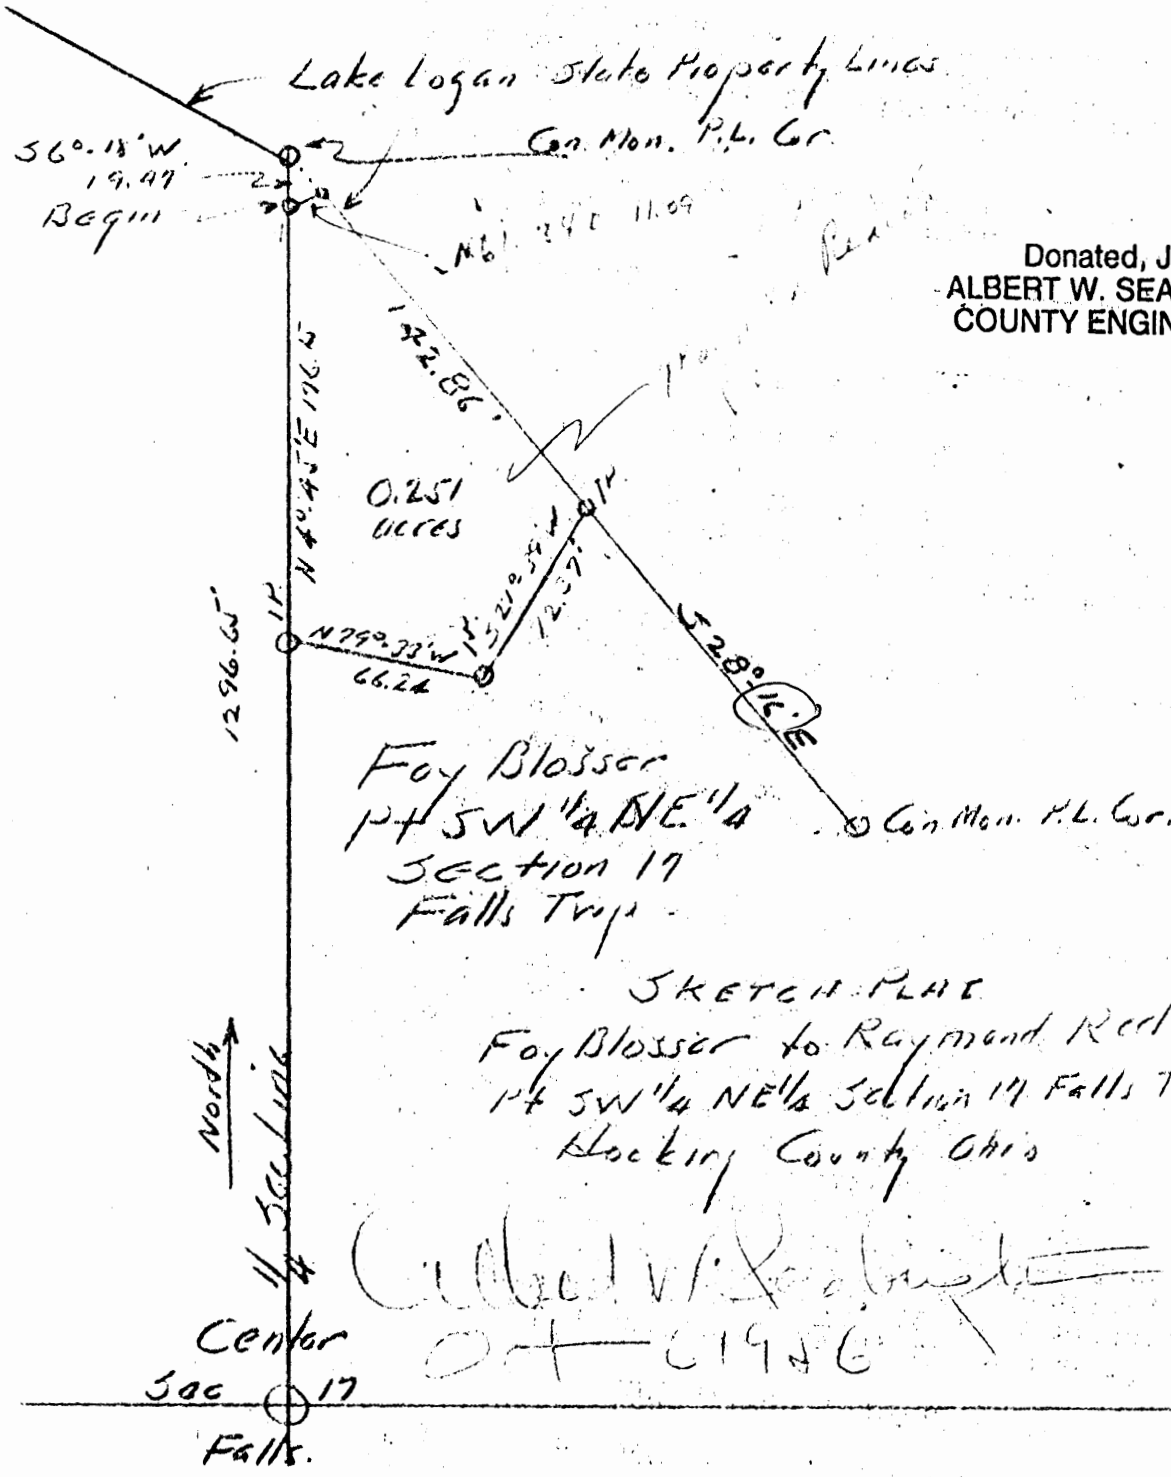 Lake Logan State Property Lines
Con. Mon. P.L. Cor.
S6°-18'W
19.47
Begin
11.09
Donated, J
ALBERT W. SEA
COUNTY ENGIN
142.86'
N4°-45'E 176.5
0.251
acres
IP.
S21°-39'W
12.37'
IP.
N79°-33'W
66.24
IP.
1296.65'
S28°-16'E
Con Mon. P.L. Cor.
Foy Blosser
Pt SW 1/4 NE 1/4
Section 17
Falls Twp.
SKETCH PLAT
Foy Blosser to Raymond
Pt SW 1/4 NE 1/4 Section 17 Falls T
Hocking County Ohio
North
1/4 Sec Line
Center
Sec 17
Falls.